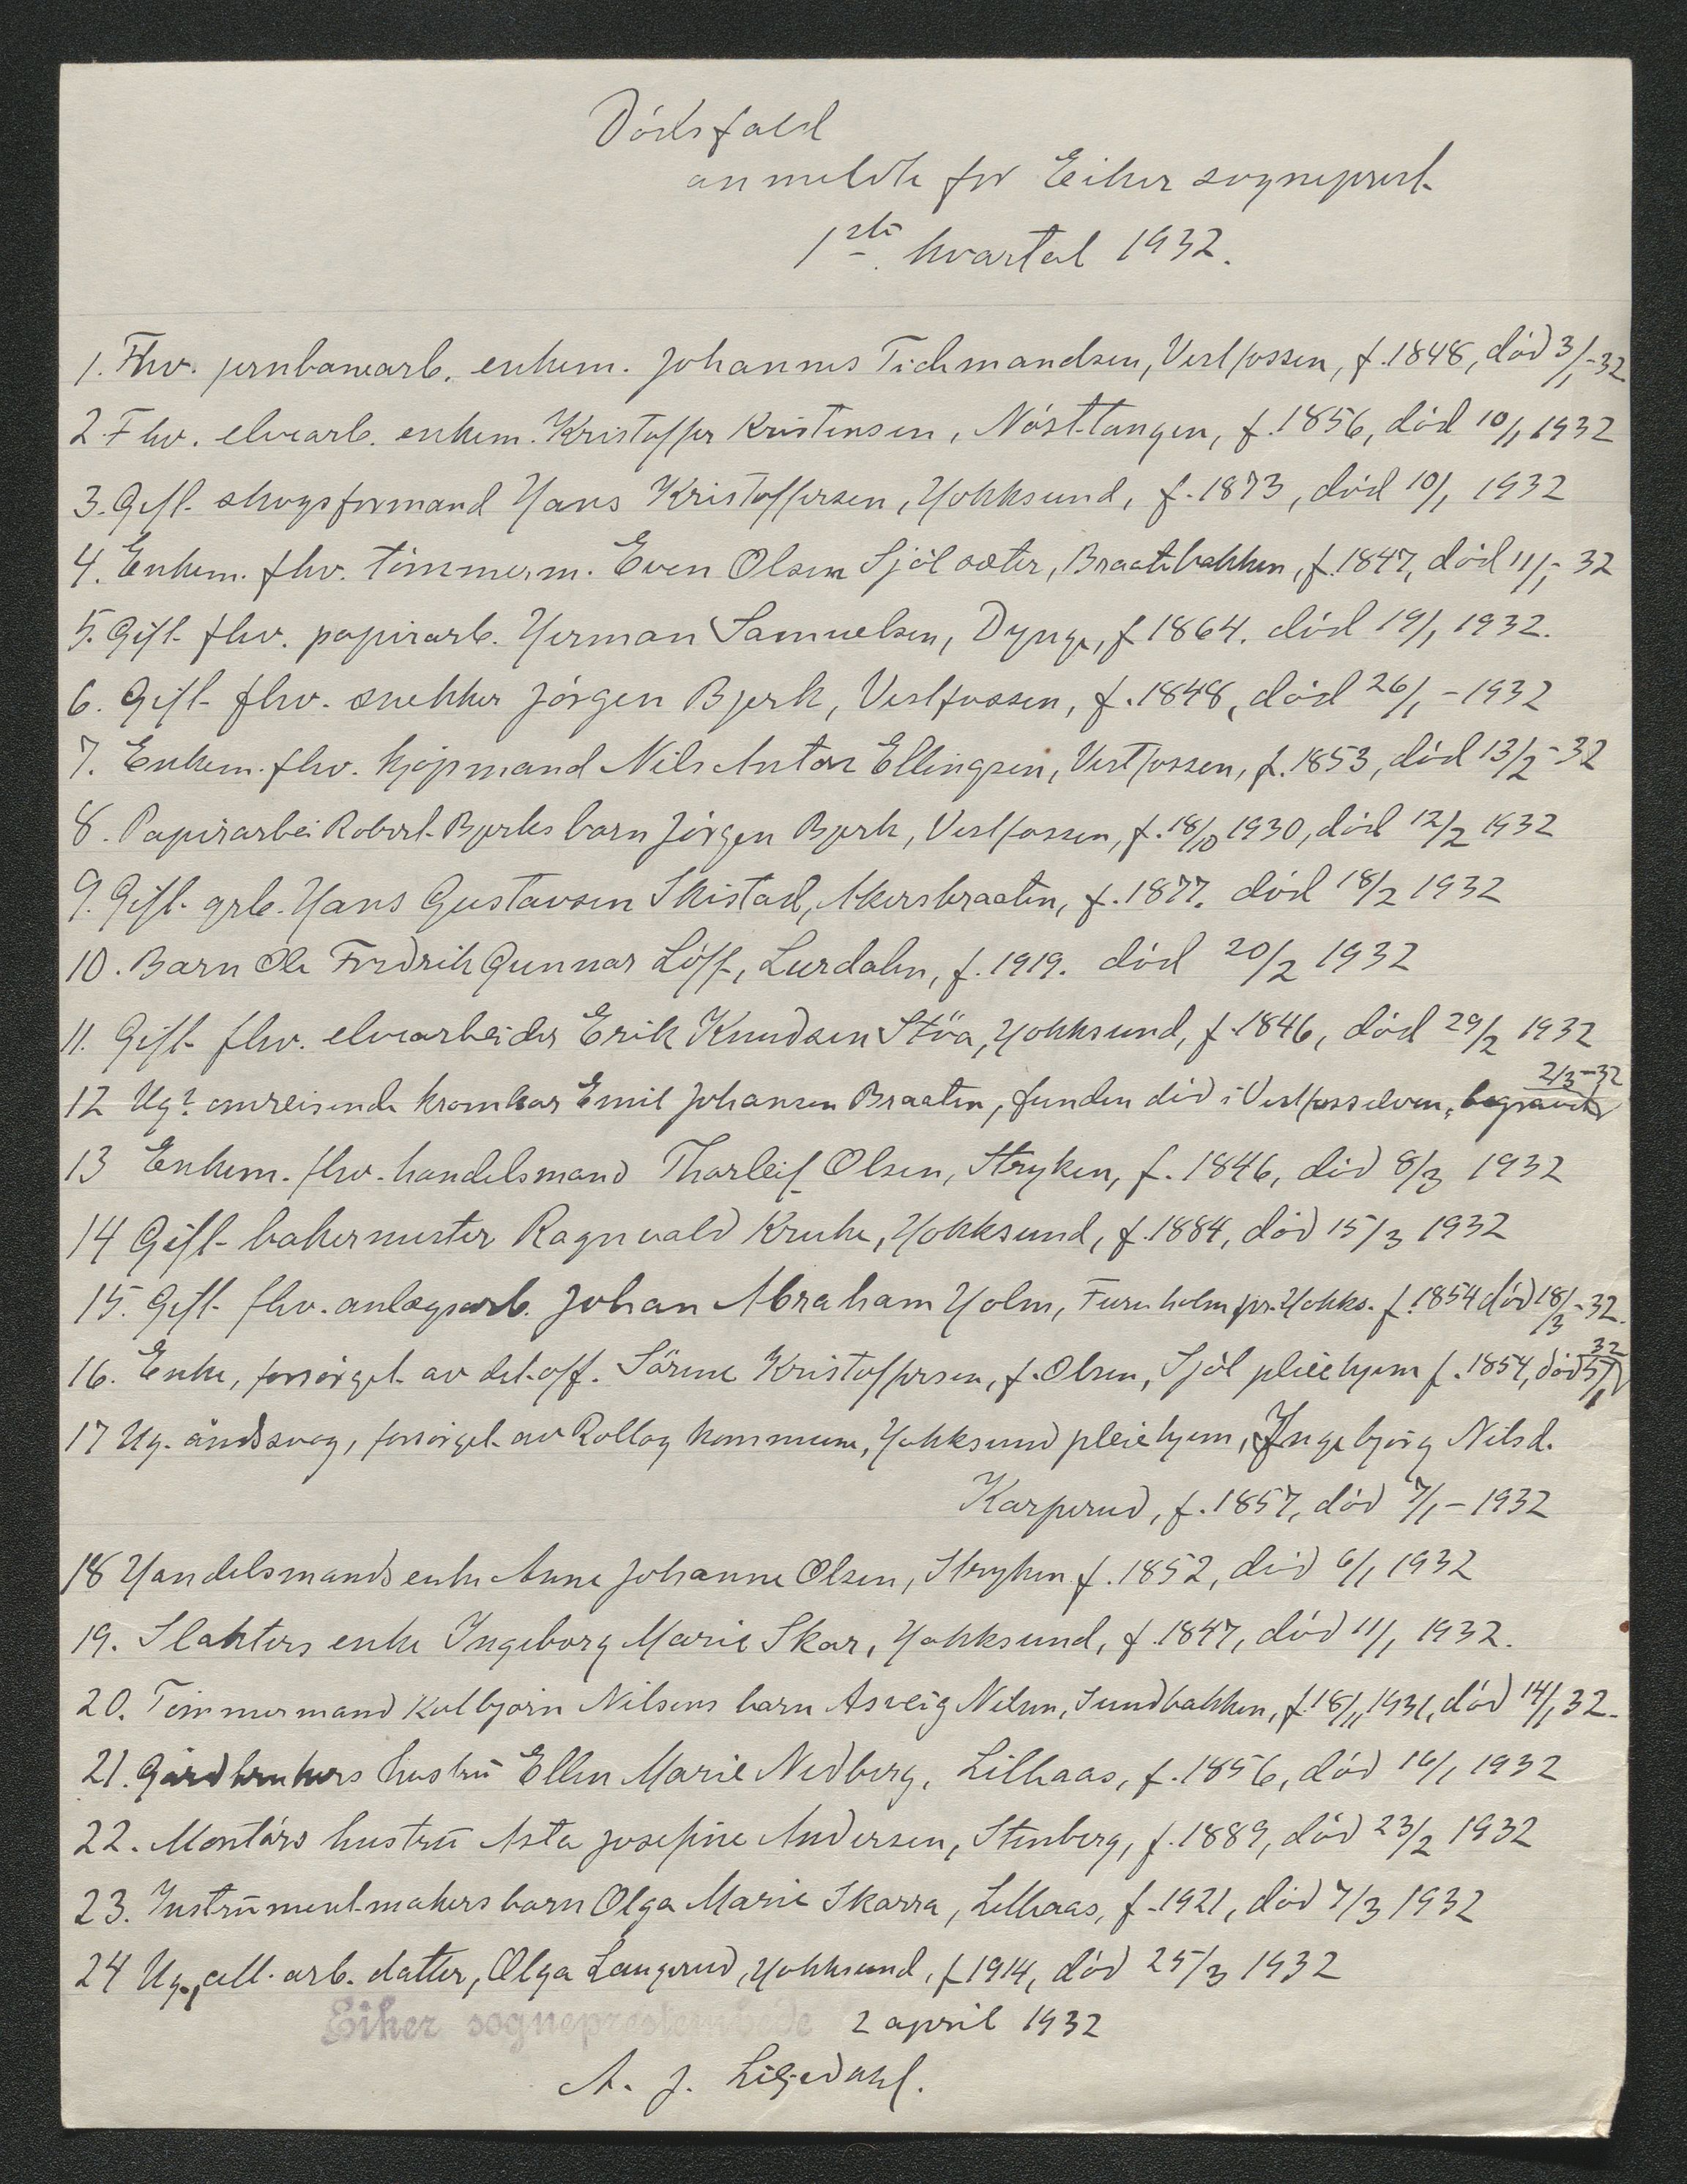 Dödsfald
anmeldte for Eiker sogneprest
1ste kvartal 1932.
1. Fhv. jernbanearb. enkem. Johannes Tichmandsen, Vestfossen, f. 1848, död 3/1-32
2. Fhv. elvearb. enkem. Kristoffer Kristensen, Nösttangen, f. 1856, död 10/1 1932
3. Gift. skogsformand Hans Kristoffersen, Hokksund, f. 1873, död 10/1 1932
4. Enkem. fhv. tömmerm. Even Olsen Sjölsæter, Braatebakken, f. 1847, död 11/1-32
5. Gift- fhv. papirarb. Herman Samuelsen, Dynge, f 1864. död 19/1 1932.
6. Gift- fhv. snekker Jörgen Bjerk, Vestfossen, f. 1848, död 26/1-1932
7. Enkem. fhv. kjøpmand Nils Anton Ellingsen, Vestfossen, f. 1853, död 13/2-32
8. Papirarbei Robert Bjerks barn Jörgen Bjerk, Vestfossen, f. 18/10 1930, död 12/2 1932
9. Gift- grb. Hans Gustavsen Skistad, Akersbraaten, f. 1877. död 18/2 1932
10. Barn Ole Fredrik Gunnar Löff, Lurdalen, f. 1919. död 20/2 1932
11. Gift- fhv. elvearbeider Erik Knudsen Stöa, Hokksund, f. 1846, död 29/2 1932
12 Ug? omreisende kramkar Emil Johansen Braaten, funden död i Vestfosselven, begravet 2/3-32
13 Enkem. fhv. handelsmand Thorleif Olsen, Stryken, f. 1846, död 8/3 1932
14 Gift- bakermester Ragnvald Kruke, Hokksund, f. 1884, död 15/3 1932
15. Gift- fhv. anlægsarb. Johan Abraham Holm, Furuholm pr. Hokks. f. 1854 död 18/3-32.
16. Enke, forsörget av det off. Sörine Kristoffersen, f. Olsen, Sjöl pleiehjem f. 1854, död 5/1 32
17 Ug. åndssvag, forsörget av Rollag kommune, Hokksund pleiehjem, Ingebjörg Nilsd.
Karperud, f. 1857, död 7/1-1932
18 Handelsmands enke Anne Johanne Olsen, Stryken f. 1852, död 6/1 1932
19. Slakters enke Ingeborg Marie Skar, Hokksund, f. 1847, död 11/1 1932.
20. Tömmermand Kolbjörn Nilsens barn Asveig Nilsen, Sundbakken, f. 18/11 1931, död 14/1 32.
21. Gårdbrukers hustru Ellen Marie Nedberg, Lilhaas, f. 1856, död 16/1 1932
22. Montörs hustru Asta Josefine Andersen, Stenberg, f. 1889, död 23/2 1932
23. Instrumentmakers barn Olga Marie Skarra, Lilhaas, f. 1921, död 7/3 1932
24 Ug., cell. arb. datter, Olga Langerud, Hokksund, f. 1914, död 25/3 1932
Eiker sogneprestembede 2 april 1932
A. J. Liljedahl.